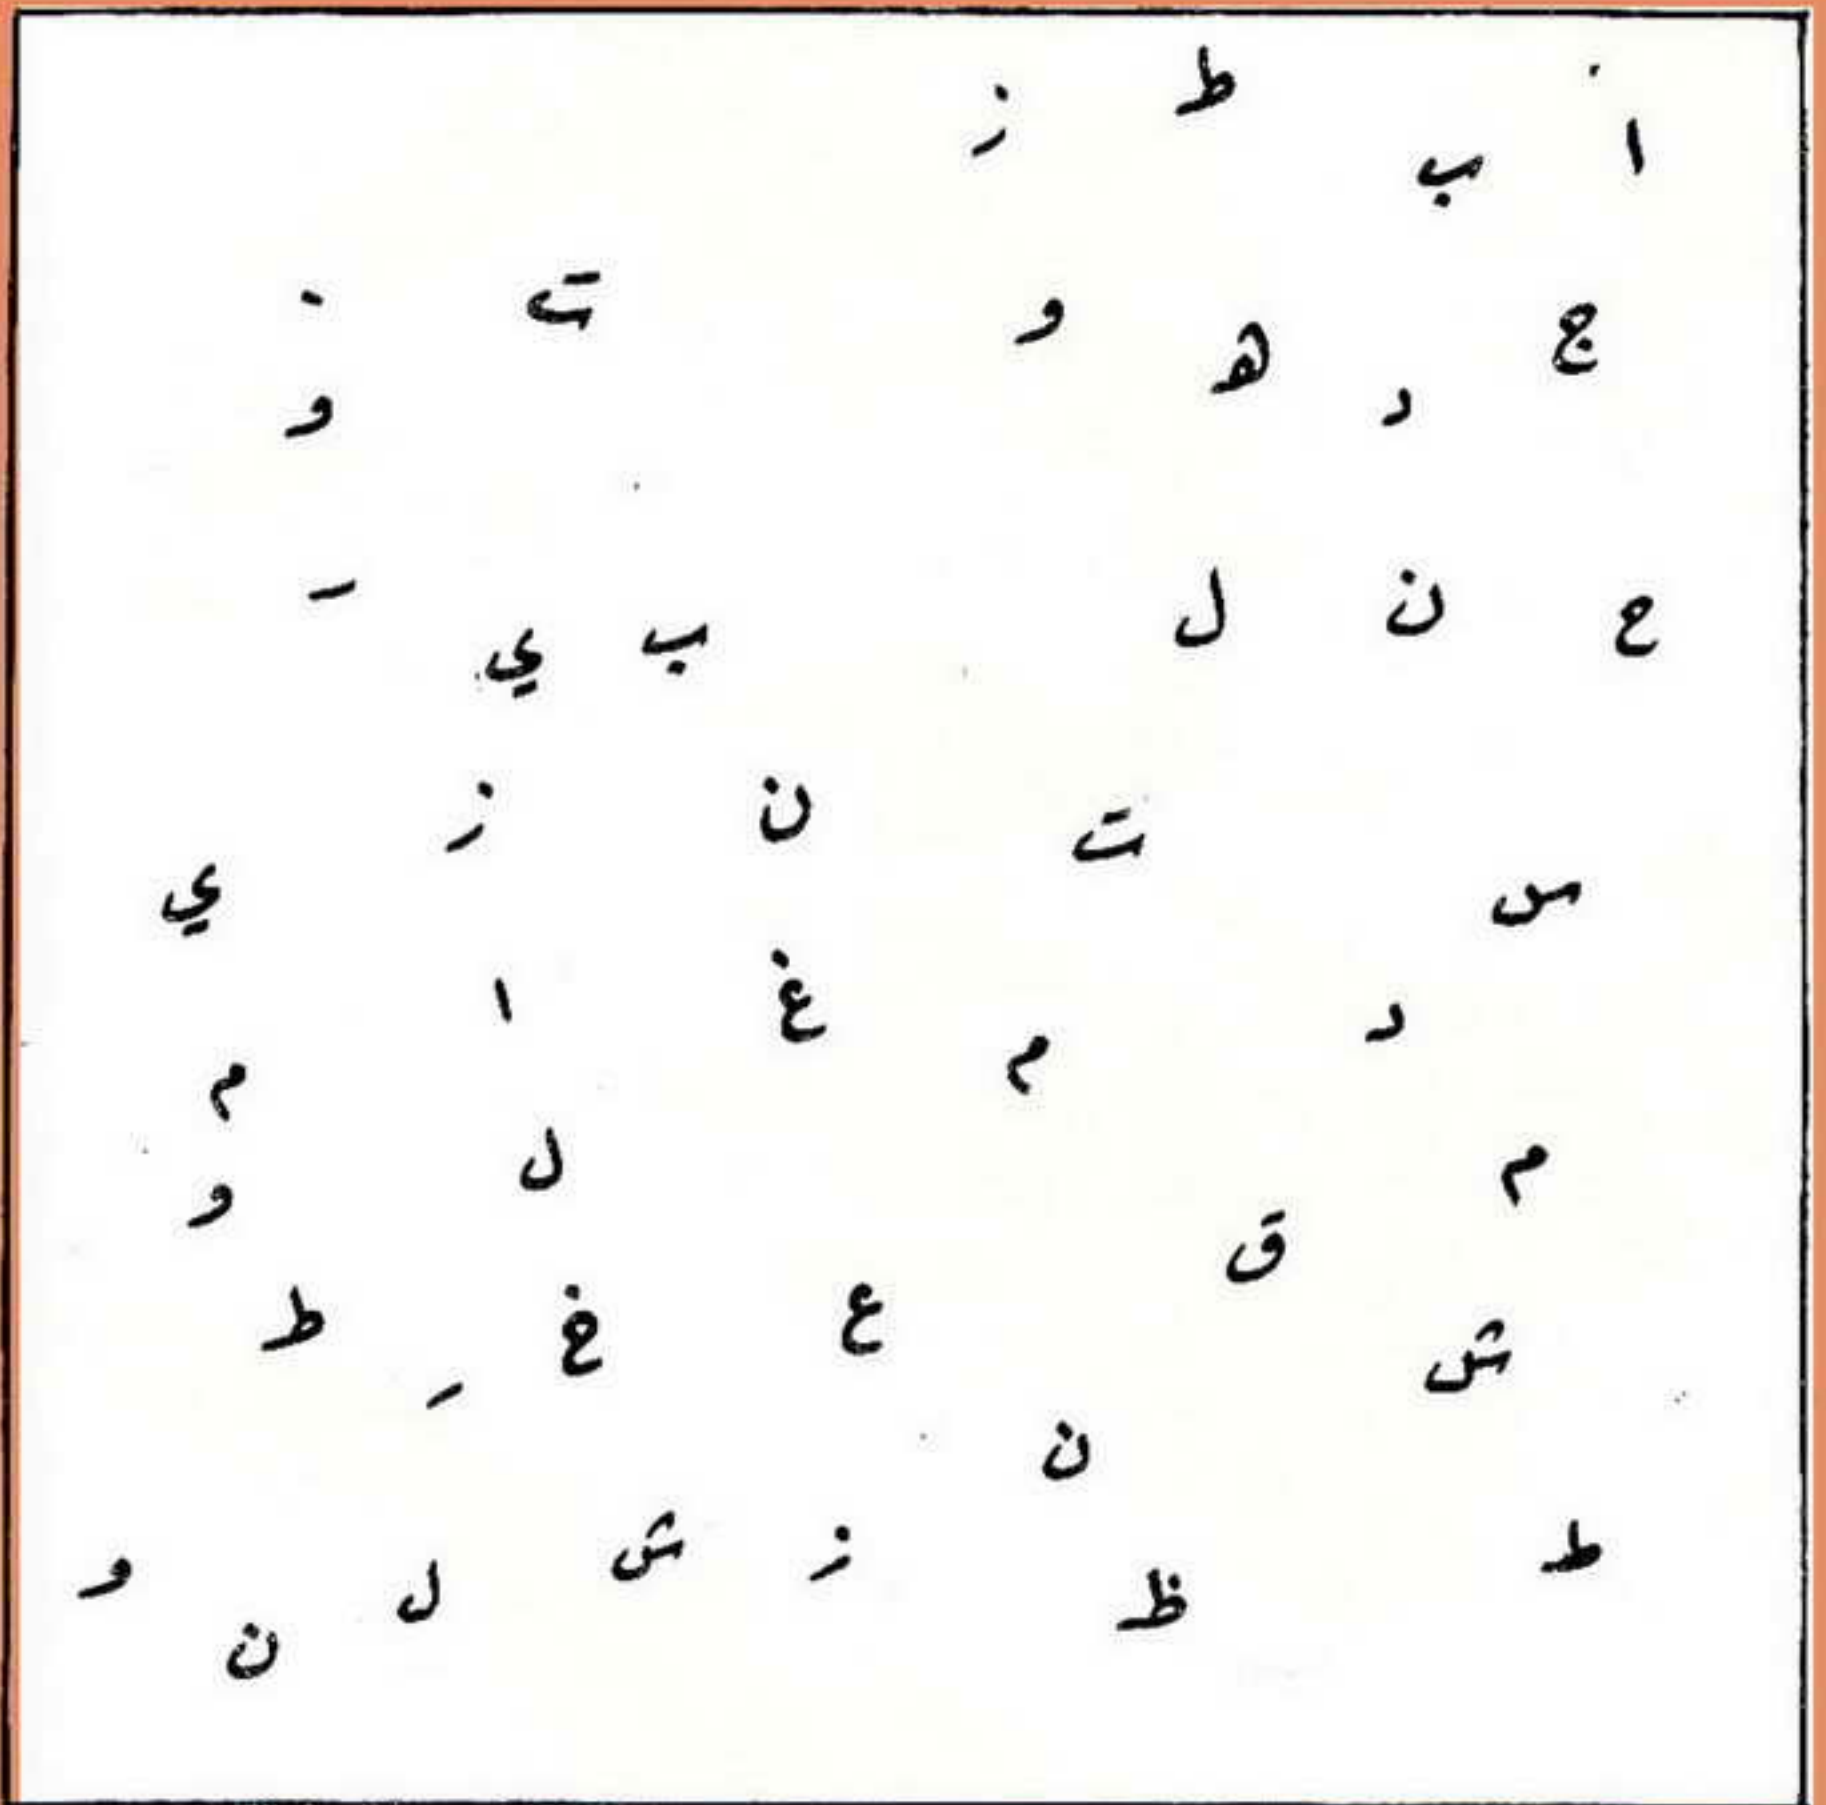 ا ب ط ز
ج د ھ و ت و
ح ن ل ب ي
س ت ن ز ي
د م غ ا م
م ق ل و
ش ن ع غ ط
ط ظ ز ش ل ن و